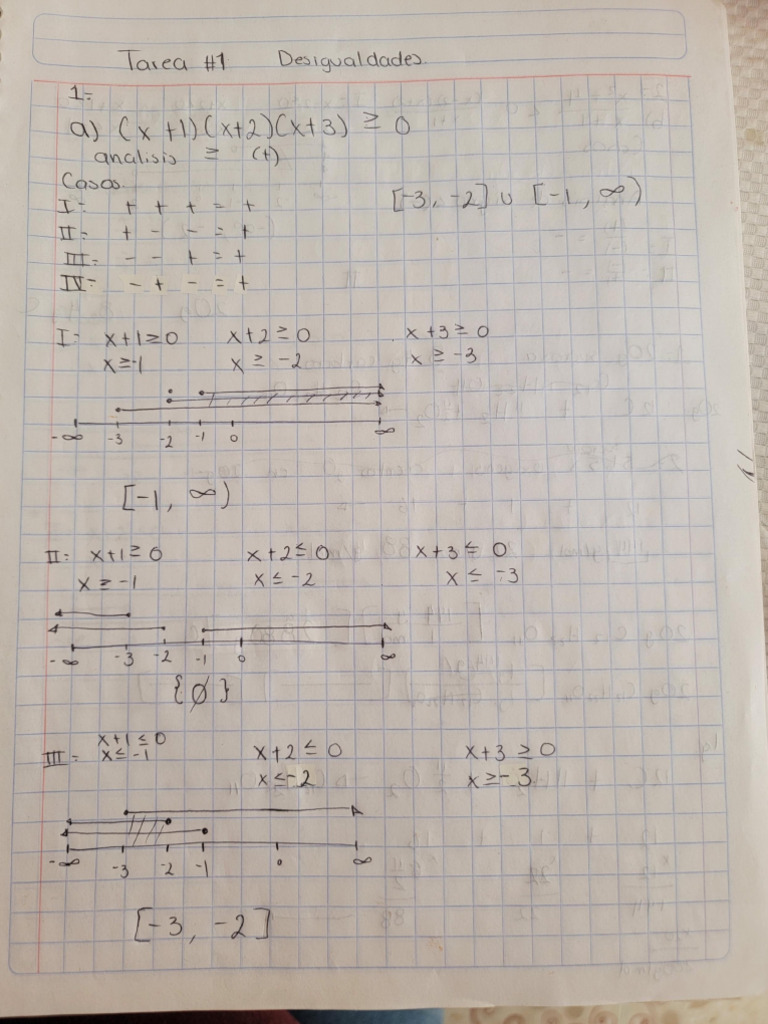 Tarea #1 Desigualdades
1:
a) (x +1)(x+2)(x+3) ≥ 0
analisis ≥ (+)
Casos
[-3, -2] ∪ [-1, ∞)
I: + + + = +
II: + - - = +
III: - - + = +
IV: - + - = +
I: x+1≥0 x+2≥0 x+3≥0
x≥-1 x ≥ -2 x ≥ -3
-∞ -3 -2 -1 0 ∞
[-1, ∞)
II: x+1≥0 x+2≤0 x+3 ≤ 0
x ≥ -1 x ≤ -2 x ≤ -3
-∞ -3 -2 -1 0 ∞
{∅}
III: x+1 ≤ 0 x+2 ≤ 0 x+3 ≥ 0
x ≤ -1 x ≤ -2 x ≥ -3
-∞ -3 -2 -1 0 ∞
[-3, -2]